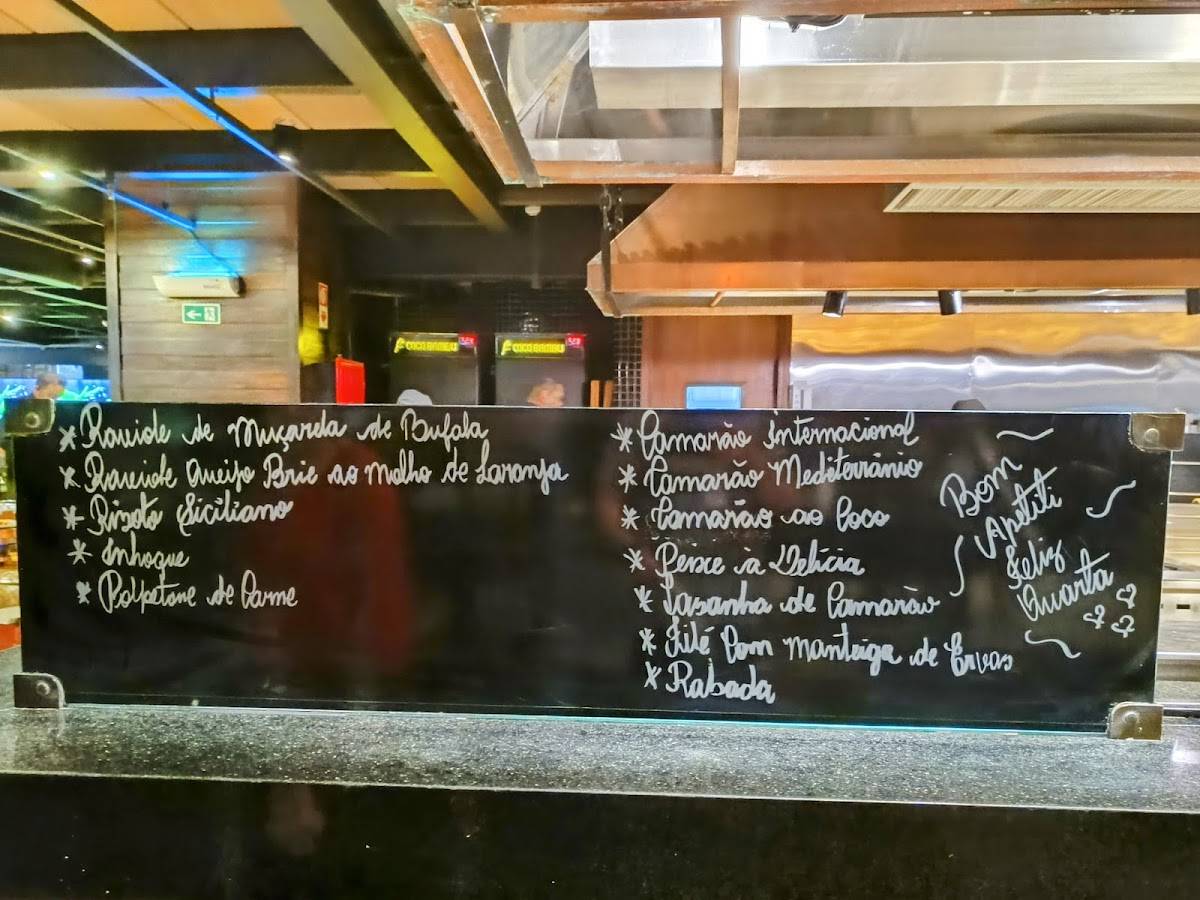 COCO BAMBU
COCO BAMBU
* Raviole de Muçarela de Bufala
* Raviole Queijo Brie ao Molho de Laranja
* Risoto Siciliano
* Inhoque
* Polpetone de Carne
* Camarão Internacional
* Camarão Mediterrânio
* Camarão ao Coco
* Peixe à Delícia
* Lasanha de Camarão
* Filé Com Manteiga de Ervas
* Rabada
Bom
Apetiti
Feliz
Quarta